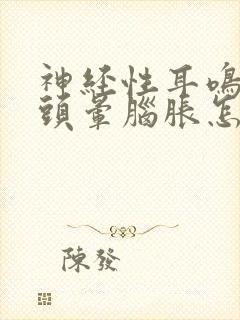 神经性耳鳴
頭暈腦脹怎
陳發